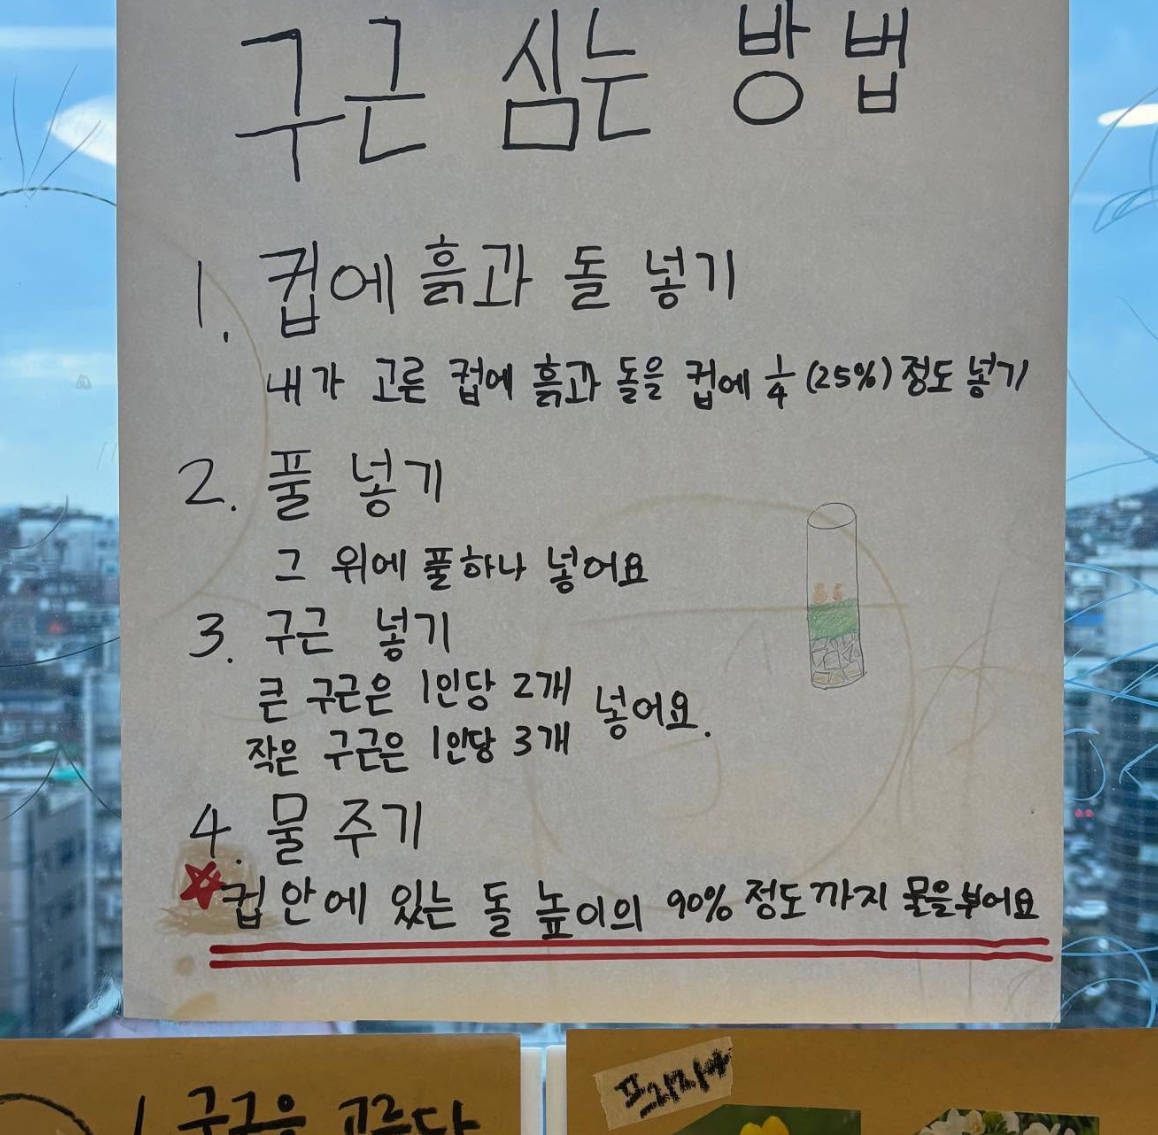 구근 심는 방법
1. 컵에 흙과 돌 넣기
내가 고른 컵에 흙과 돌을 컵에 1/4 (25%) 정도 넣기
2. 풀 넣기
그 위에 풀하나 넣어요
3. 구근 넣기
큰 구근은 1인당 2개
작은 구근은 1인당 3개 넣어요.
4. 물 주기
컵 안에 있는 돌 높이의 90% 정도까지 물을 부어요
구근을 고른다
프리지아